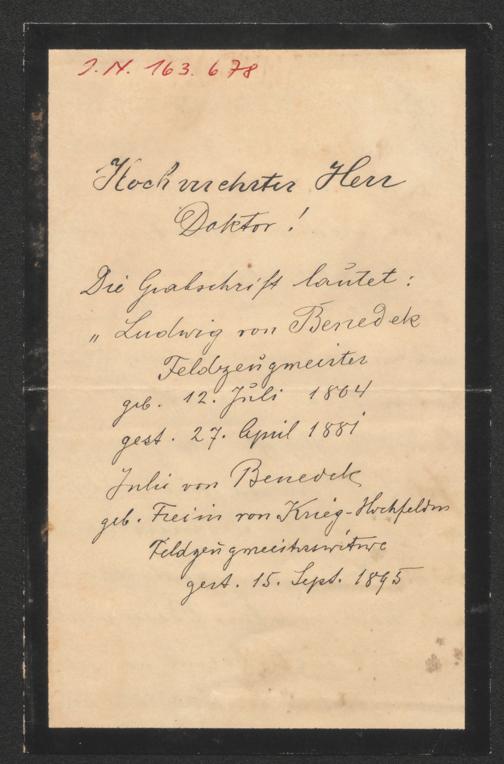 J. N. 163. 678
Hochverehrter Herr
Doktor!
Die Grabschrift lautet:
„ Ludwig von Benedek
Feldzeugmeister
geb. 12. Juli 1804
gest. 27. April 1881
Julie von Benedek
geb. Freiin von Krieg-Hochfelden
Feldzeugmeisterswitwe
gest. 15. Sept. 1895